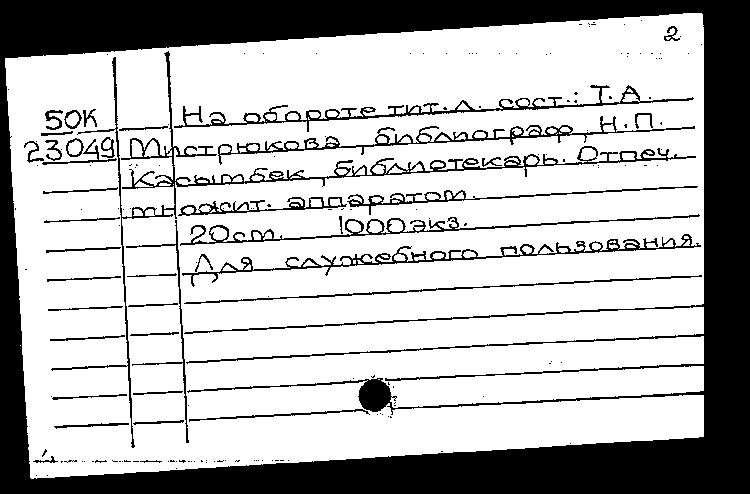 2
50К На обороте тит. л. сост.: Т.А.
23049 Мистрюкова, библиограф, Н.П.
Касымбек, библиотекарь. Отпеч.
множит. аппаратом.
20см. 1000экз.
Для служебного пользования.